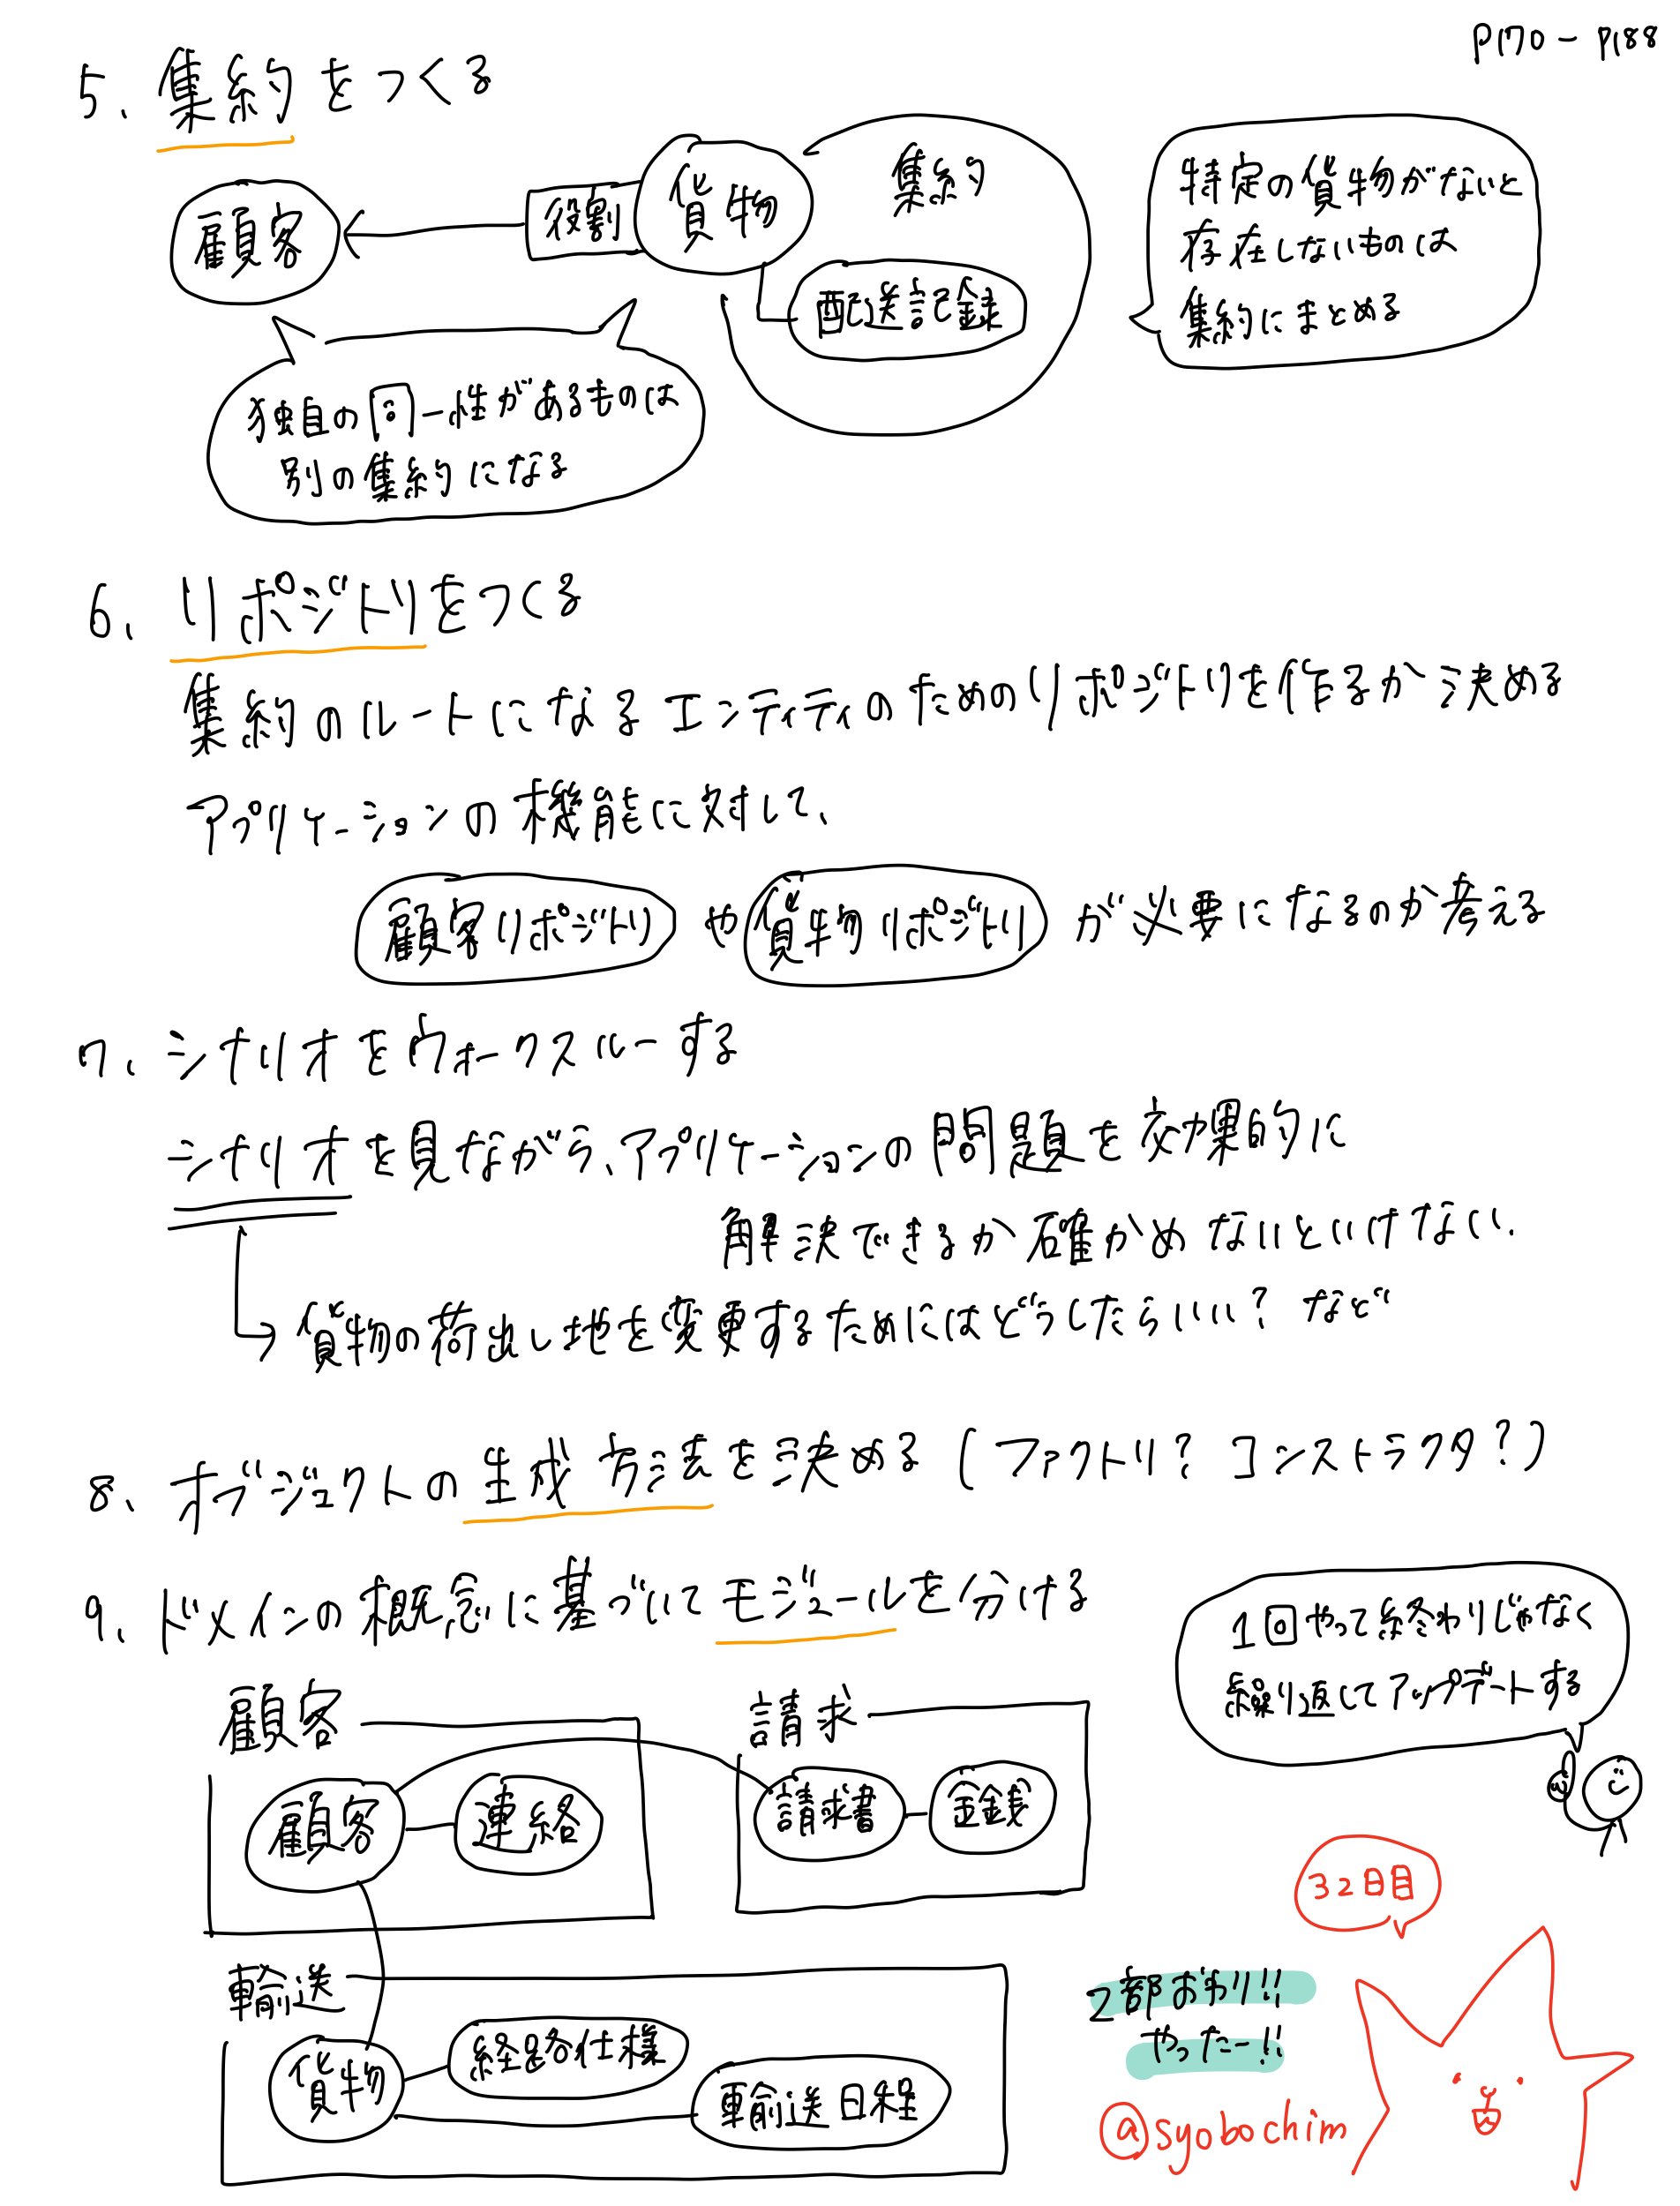 P170 - P188
5、集約をつくる
顧客
役割
貨物
集約
配送記録
特定の貨物がないと
存在しないものは
集約にまとめる
独自の同一性があるものは
別の集約になる
6、リポジトリをつくる
集約のルートになるエンティティのためのリポジトリを作るか決める
アプリケーションの機能に対して、
顧客リポジトリ や 貨物リポジトリ が必要になるのか考える
7、シナリオをウォークスルーする
シナリオを見ながら、アプリケーションの問題を効果的に
解決できるか確かめないといけない.
貨物の荷出し地を変更するためにはどうしたらいい? など
8、オブジェクトの生成方法を決める (ファクトリ? コンストラクタ?)
9、ドメインの概念に基づいてモジュールを分ける
1回やって終わりじゃなく
繰り返してアップデートする
顧客
顧客
連絡
請求
請求書
金銭
輸送
貨物
経路仕様
輸送日程
32日目
2部おわり!!
やったー!!
@syobochim